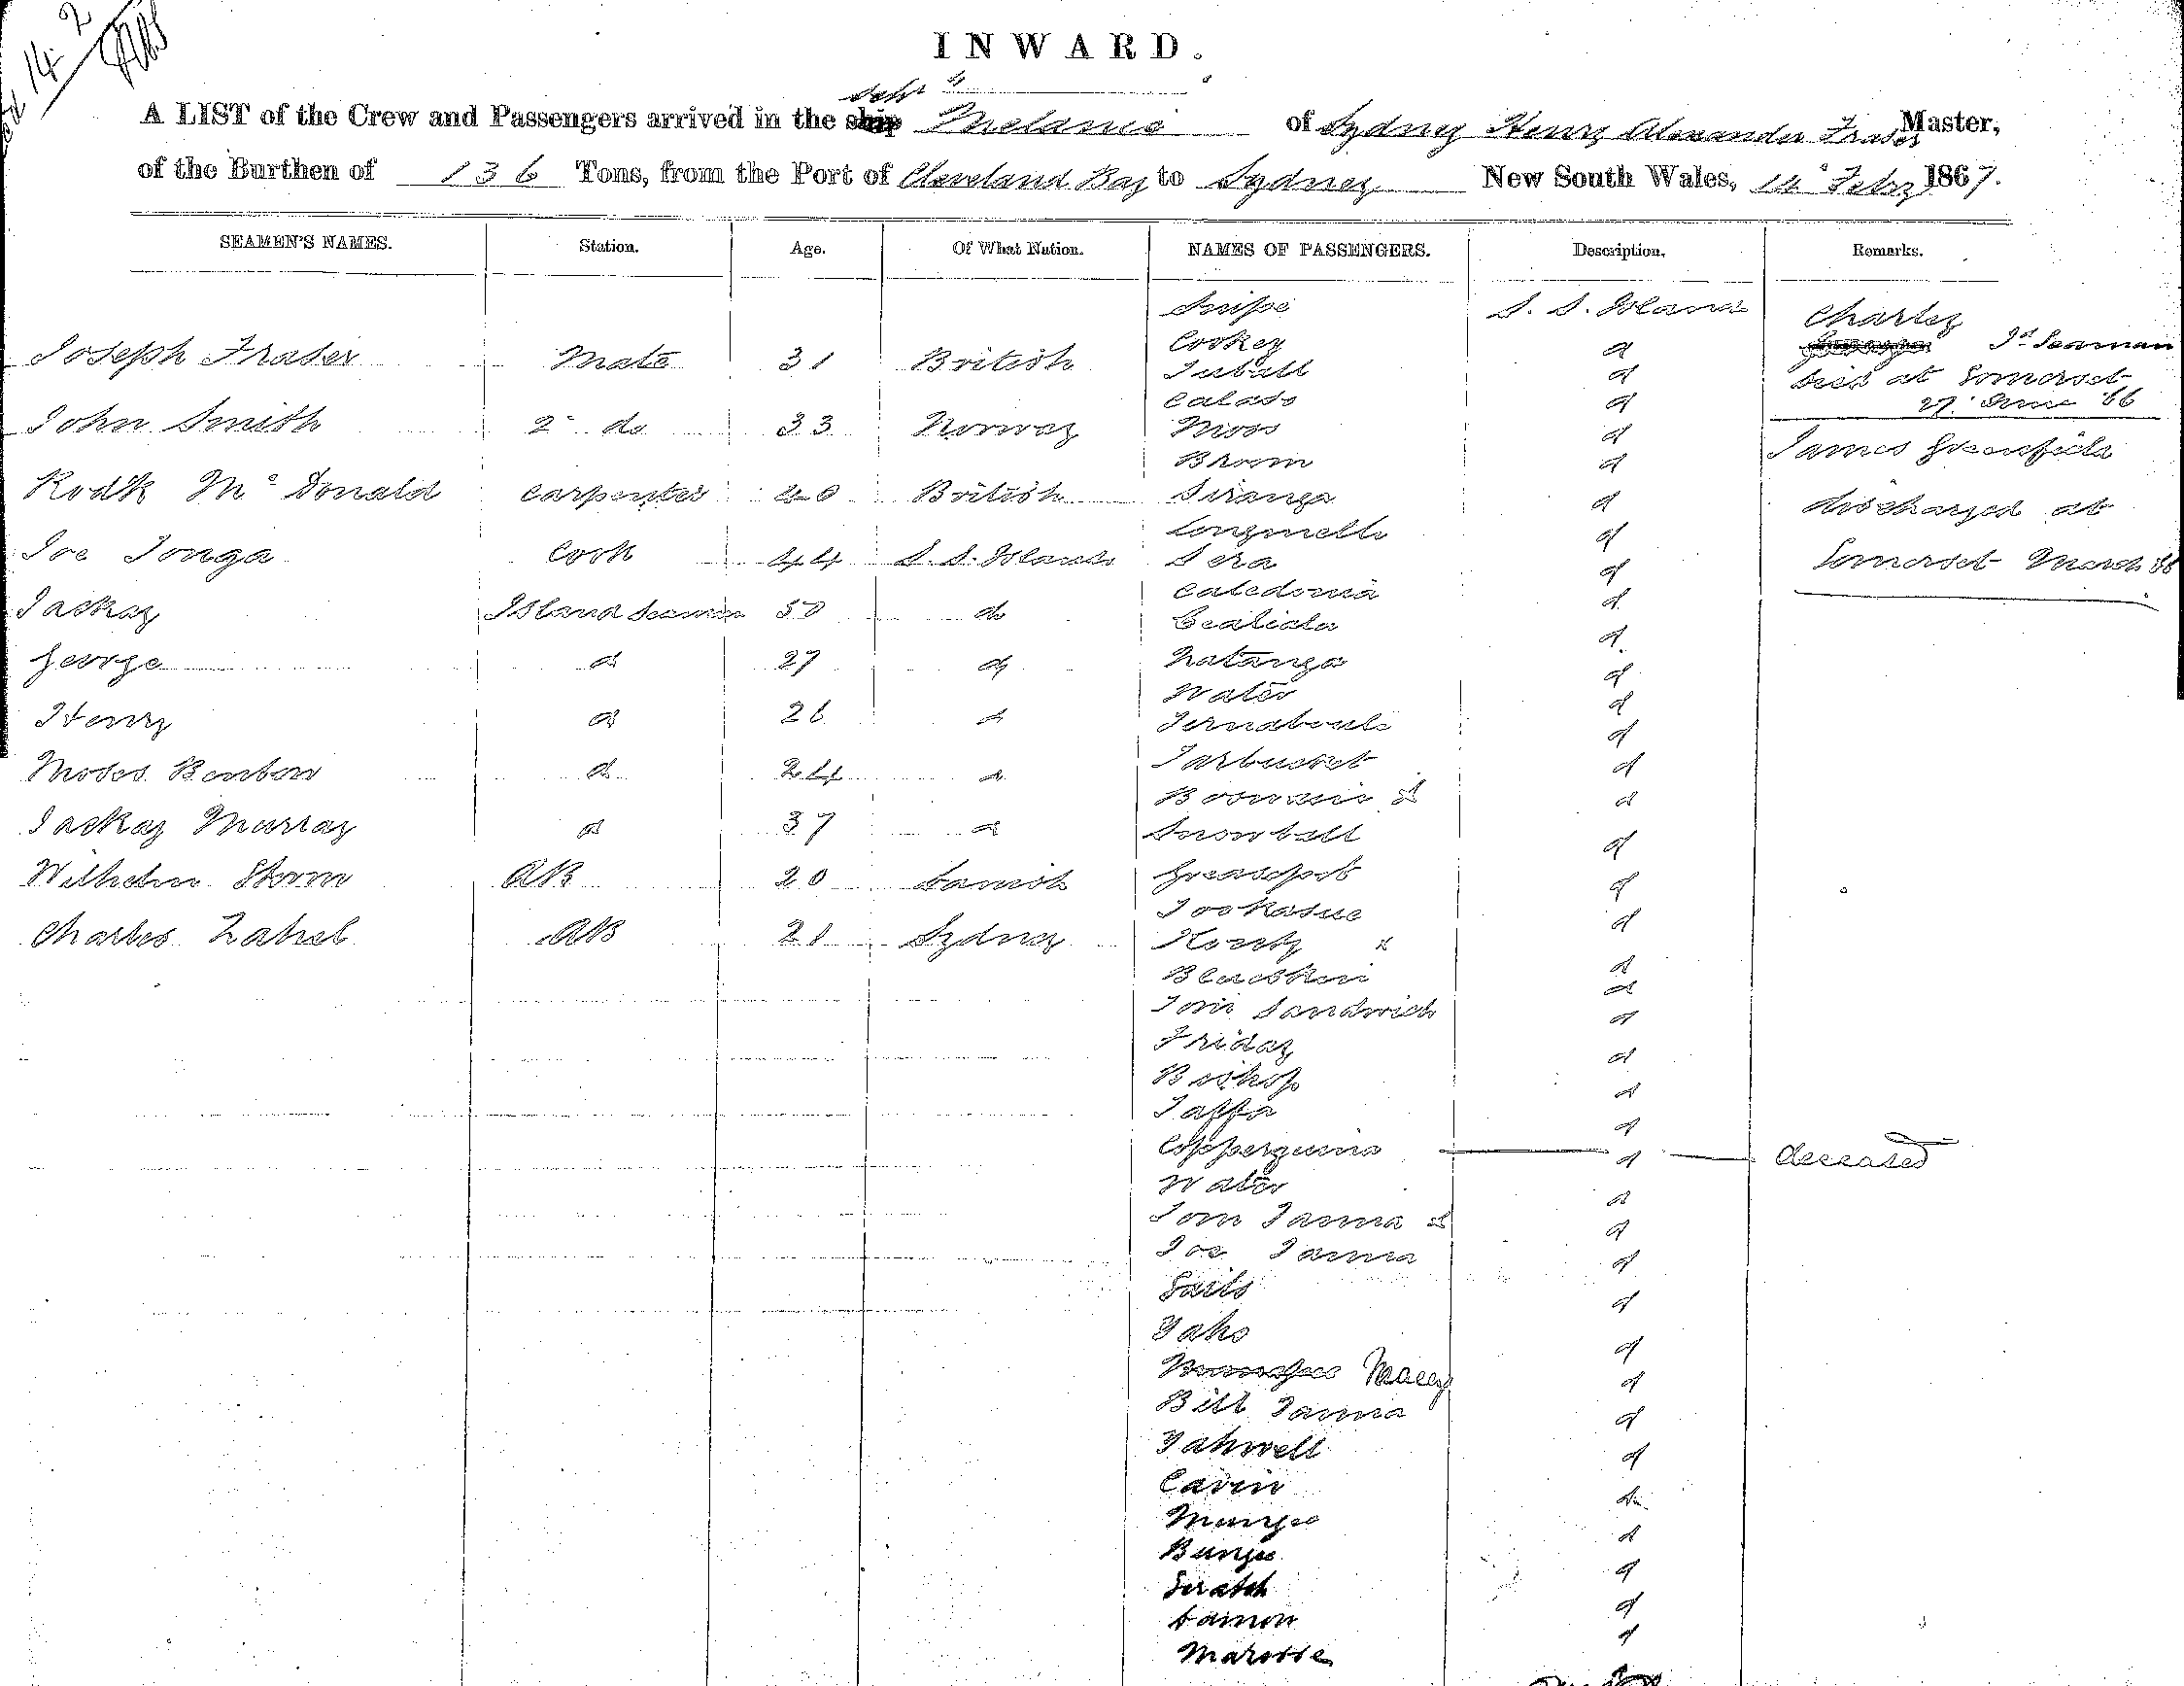 14 2
INWARD.
A LIST of the Crew and Passengers arrived in the ship Schr Melanie of Sydney Henry Alexander Fraser Master,
of the Burthen of 136 Tons, from the Port of Cleveland Bay to Sydney New South Wales, 14 Feby 1867.
SEAMEN'S NAMES. Station. Age. Of What Nation. NAMES OF PASSENGERS. Description. Remarks.
Snipe S. S. Island
Charley
Joseph Fraser Mate 31 British Cookey d 
Jd Seaman
Tuball d died at Somerset
Calado d 27 June 66
John Smith 2nd do 33 Norway Moss d
Broom d James Greenfield
Rodk McDonald Carpenter 40 British Siranga d discharged at
Longmells d
Joe Tonga Cook 44 S. S. Islands Sera d Somerset March 66
Caledonia d
Jackay Island Seaman 50 do Cealiala d
George d 27 d Natanga d
Water d
Henry d 26 d Ternaboult d
Moses Benbow d 24 d Tarbucket d
d
Jackay Murray d 37 d Snowball d
Wilhelm Storm AB 20 Danish d
Tookasue d
Charles Zahel AB 21 Sydney
Blackskin d
Tom Sandwich d
Friday d
Bishop d
Jaffa d
Coppergums d deceased
Water d
Tom Tanna d
Joe Tanna d
Sails d
Yaho d
Macey d
Bill Tanna d
Yahwell d
Cavin do
Mungee d
Bungee d
Scratch d
Damon d
Marosse